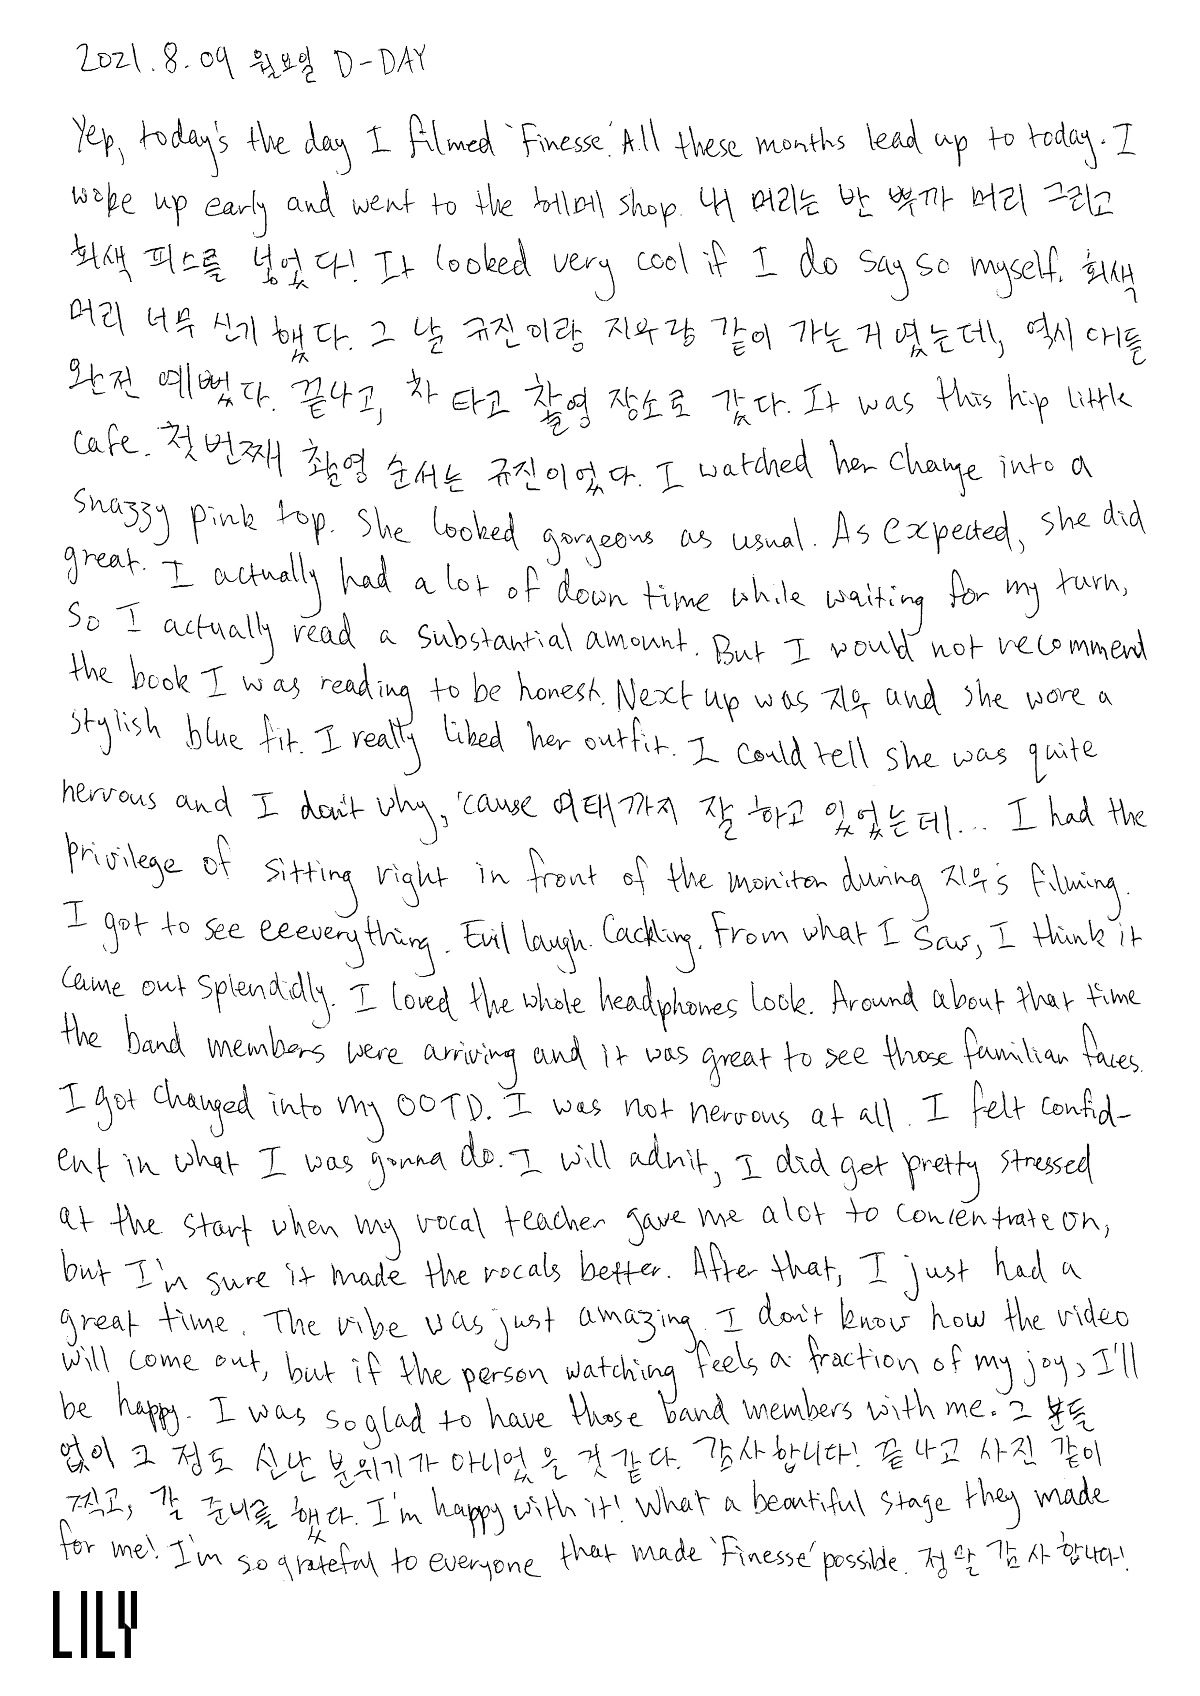 2021.8.09 월요일 D-DAY
Yep, today's the day I filmed 'Finesse'. All these months lead up to today. I
woke up early and went to the 헤메 shop. 내 머리는 반 뿌까 머리 그리고
회색 피스를 넣었다! It looked very cool if I do say so myself. 회색
머리 너무 신기했다. 그 날 규진이랑 지우랑 같이 가는 거였는데, 역시 다들
완전 예뻤다. 끝나고, 차 타고 촬영 장소로 갔다. It was this hip little
cafe. 첫번째 촬영 순서는 규진이었다. I watched her change into a
snazzy pink top. She looked gorgeous as usual. As expected, she did
great. I actually had a lot of down time while waiting for my turn,
so I actually read a substantial amount. But I would not recommend
the book I was reading to be honest. Next up was 지우 and she wore a
stylish blue fit. I really liked her outfit. I could tell she was quite
nervous and I don't why, 'cause 여태까지 잘 하고 있었는데... I had the
privilege of sitting right in front of the monitor during 지우's filming.
I got to see eeeverything. Evil laugh. Cackling. From what I saw, I think it
came out splendidly. I loved the whole headphones look. Around about that time
the band members were arriving and it was great to see those familiar faces.
I got changed into my OOTD. I was not nervous at all. I felt confid-
ent in what I was gonna do. I will admit, I did get pretty stressed
at the start when my vocal teacher gave me alot to concentrate on,
but I'm sure it made the vocals better. After that, I just had a
great time. The vibe was just amazing. I don't know how the video
will come out, but if the person watching feels a fraction of my joy, I'll
be happy. I was so glad to have those band members with me. 그 분들
없이 그 정도 신난 분위기가 아니었을 것 같다. 감사합니다! 끝나고 사진 같이
찍고, 갈 준비를 했다. I'm happy with it! What a beautiful stage they made
for me! I'm so grateful to everyone that made 'Finesse' possible. 정말 감사합니다!
LILY